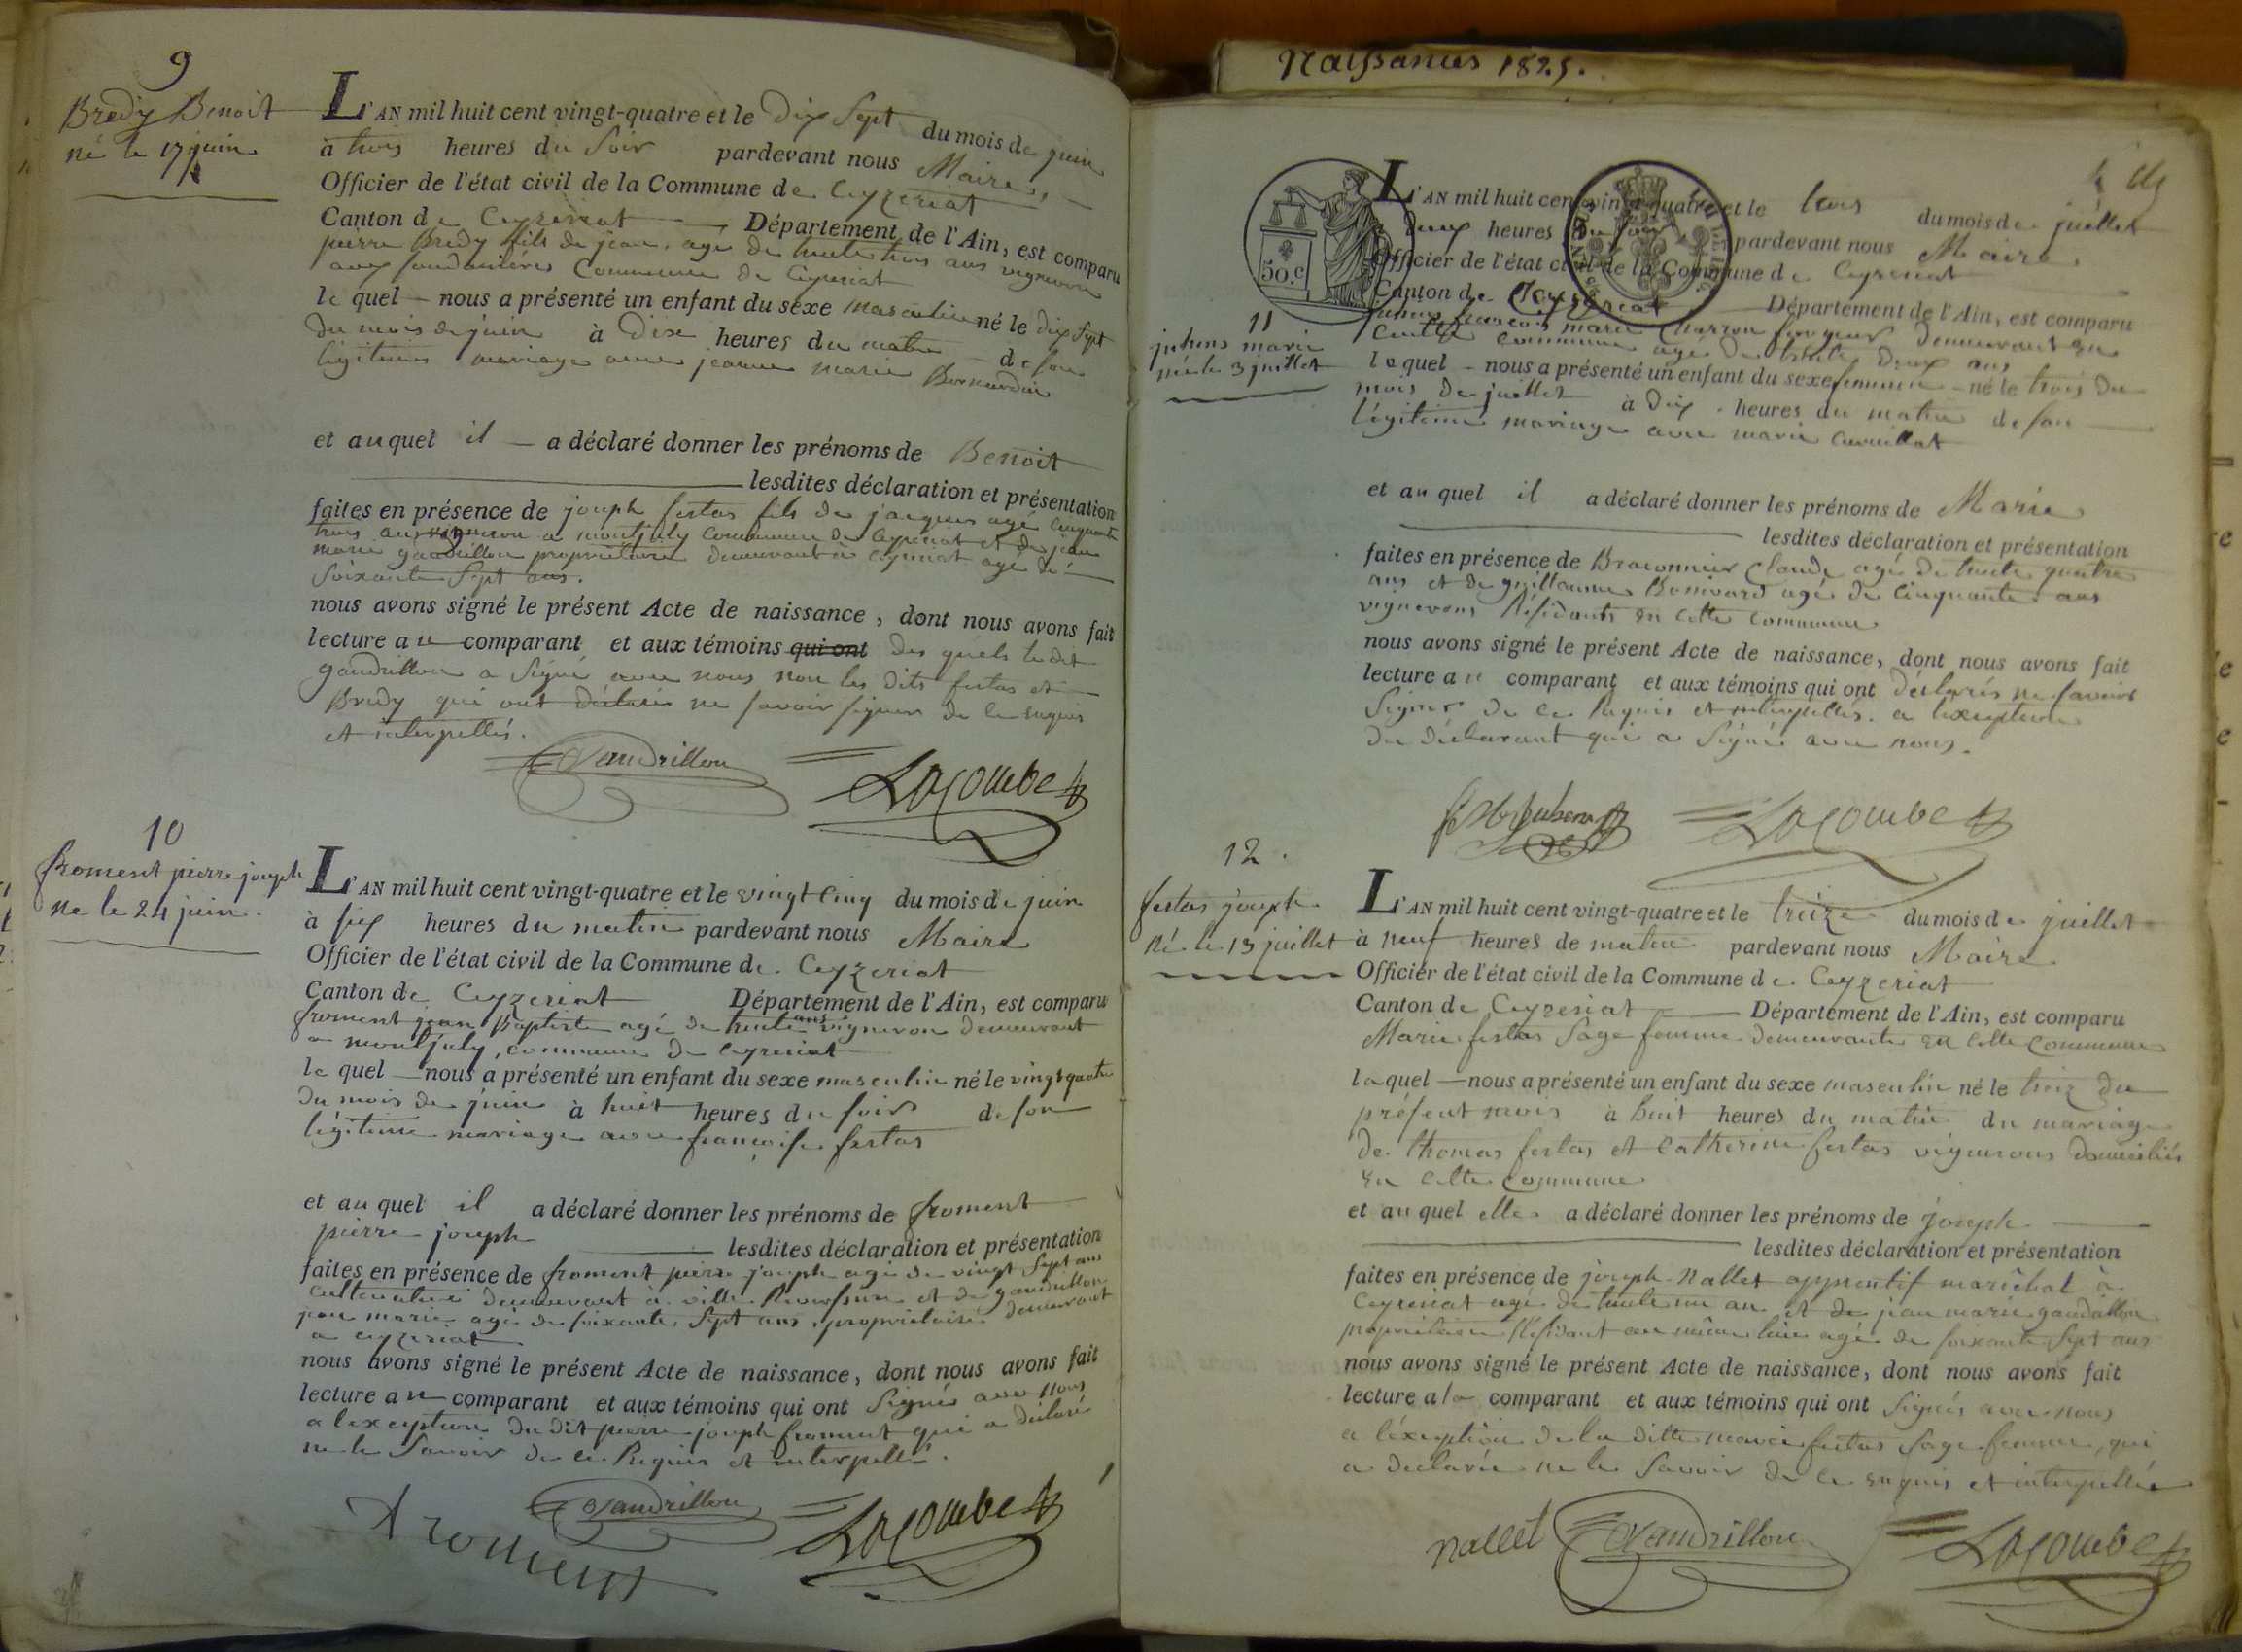 9
Bredy Benoit
né le 17 juin
L'AN mil huit cent vingt-quatre et le dix Sept du mois de juin
à trois heures du Soir pardevant nous Maire,
Officier de l'état civil de la Commune de Ceyzeriat
Canton de Ceyzeriat Département de l'Ain, est comparu
pierre Bredy fils de jean, agé de trente trois ans vigneron
aux Commune de Ceyzeriat
le quel nous a présenté un enfant du sexe masculin né le dix Sept
du mois de juin à dix heures du matin de son
légitime mariage avec jeanne marie Bernardin
et auquel il a déclaré donner les prénoms de Benoit
lesdites déclaration et présentation
faites en présence de joseph festas fils de jacques agé cinquante
trois ans vigneron a montjuly commune de Ceyzeriat et de jean
marie gaudrillon propriétaire demeurant à ceyzeriat agé de
soixante Sept ans.
nous avons signé le présent Acte de naissance, dont nous avons fait
lecture au comparant et aux témoins qui ont des quels le dit
gaudrillon a Signé avec nous non les dits festas et
Bredy qui ont déclarés ne savoir signer de ce enquis
et interpellés.
Gaudrillon Lacombe
10
froment pierre joseph
né le 24 juin.
L'AN mil huit cent vingt-quatre et le vingt cinq du mois de juin
à six heures du matin pardevant nous Maire
Officier de l'état civil de la Commune de Ceyzeriat
Canton de Ceyzeriat Département de l'Ain, est comparu
froment jean Baptiste agé de trente ans vigneron demeurant
a montjuly, commune de ceyzeriat
le quel nous a présenté un enfant du sexe masculin né le vingt quatre
du mois de juin à huit heures du soir de son
légitime mariage avec françoise festas
et au quel il a déclaré donner les prénoms de froment
pierre joseph
lesdites déclaration et présentation
faites en présence de froment pierre joseph agé de vingt Sept ans
cultivateur demeurant à ville Reversure et de gaudrillon
jean marie agé de soixante Sept ans, propriétaire demeurant
a ceyzeriat
nous avons signé le présent Acte de naissance, dont nous avons fait
lecture au comparant et aux témoins qui ont Signés avec nous
a l'exception du dit pierre joseph froment qui a déclaré
ne le Savoir de ce Requis et interpellé.
froment Gaudrillon Lacombe
Naissances 1825.
50.c
L'AN mil huit cent vingt-quatre et le trois du mois de juillet
à deux heures du soir pardevant nous Maire
Officier de l'état civil de la Commune de Ceyzeriat
Canton de Ceyzeriat Département de l'Ain, est comparu
11
juhens marie
née le 3 juillet
juhens françois marie charron demeurant en
cette commune agé de trente deux ans
le quel nous a présenté un enfant du sexe feminin né le trois du
mois de juillet à dix heures du matin de son
légitime mariage avec marie cuvillat
et au quel il a déclaré donner les prénoms de Marie
lesdites déclaration et présentation
faites en présence de Braconnier Claude agé de trente quatre
ans et de guillaume Bonivard agé de Cinquante ans
vignerons Résidants en cette commune
nous avons signé le présent Acte de naissance, dont nous avons fait
lecture au comparant et aux témoins qui ont déclarés ne savoir
Signer de ce Requis et interpellés. a l'exception
du déclarant qui a Signé avec nous.
Lacombe
12
festas joseph
né le 13 juillet
L'AN mil huit cent vingt-quatre et le treize du mois de juillet
à neuf heures de matin pardevant nous Maire
Officier de l'état civil de la Commune de Ceyzeriat
Canton de Ceyzeriat Département de l'Ain, est comparu
Marie festas Sage femme demeurante en cette commune
laquel nous a présenté un enfant du sexe masculin né le treiz du
présent mois à huit heures du matin du mariage
de thomas festas et Catherine festas vignerons domiciliés
en cette commune
et au quel elle a déclaré donner les prénoms de joseph
lesdites déclaration et présentation
faites en présence de joseph Nallet apprentif maréchal à
Ceyzeriat agé de trente un an et de jean marie gaudrillon
propriétaire Résidant au même lieu agé de soixante Sept ans
nous avons signé le présent Acte de naissance, dont nous avons fait
lecture a la comparant et aux témoins qui ont Signés avec nous
a l'exeption de la ditte marie festas Sage femme, qui
a déclarée ne le Savoir de ce enquis et interpellée
Nallet Gaudrillon Lacombe